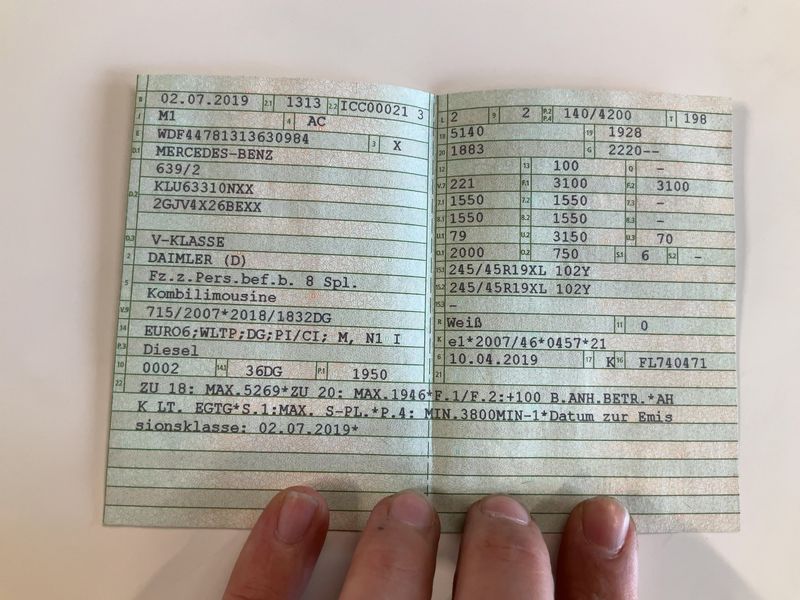 B 02.07.2019 2.1 1313 2.2 ICC00021 3
J M1 4 AC
E WDF44781313630984 3 X
D.1 MERCEDES-BENZ
639/2
D.2 KLU63310NXX
2GJV4X26BEXX
D.3 V-KLASSE
2 DAIMLER (D)
5 Fz.z.Pers.bef.b. 8 Spl.
Kombilimousine
V.9 715/2007*2018/1832DG
14 EURO6;WLTP;DG;PI/CI; M, N1 I
P.3 Diesel
10 0002 14.1 36DG P.1 1950
L 2 9 2 P.2 P.4 140/4200 T 198
18 5140 19 1928
20 1883 G 2220--
12 13 100 Q -
V.7 221 F.1 3100 F.2 3100
7.1 1550 7.2 1550 7.3 -
8.1 1550 8.2 1550 8.3 -
U.1 79 U.2 3150 U.3 70
O.1 2000 O.2 750 S.1 6 S.2 -
15.1 245/45R19XL 102Y
15.2 245/45R19XL 102Y
15.3 -
R Weiß 11 0
K e1*2007/46*0457*21
6 10.04.2019 17 K 16 FL740471
21
22 ZU 18: MAX.5269*ZU 20: MAX.1946*F.1/F.2:+100 B.ANH.BETR.*AH
K LT. EGTG*S.1:MAX. S-PL.*P.4: MIN.3800MIN-1*Datum zur Emis
sionsklasse: 02.07.2019*